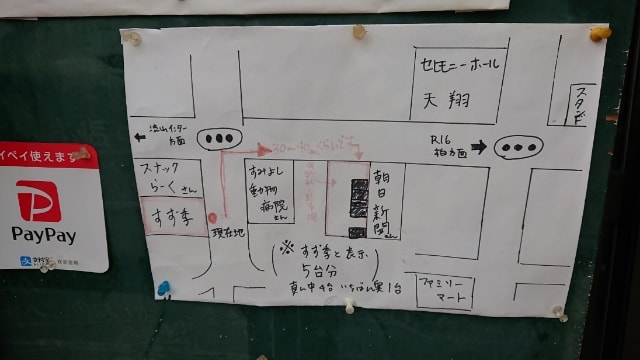 セレモニーホール
天翔
スタンド
流山インター
方面
30〜40mくらいです
R16
柏方面
スナック
らーく さん
すず季
現在地
すみよし
動物
病院さん
朝日新聞さん
※ すず季と表示
5台分
真ん中4台 いちばん奥1台
ファミリー
マート
ペイペイ使えます
PayPay